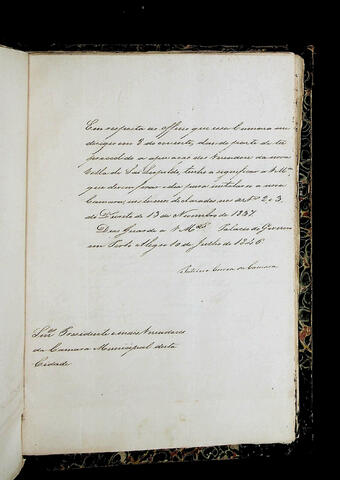 Em resposta ao officio que essa Camara me
dirigio em 8 do corrente, dando parte de ter
procedido a apuração de Vereadores da nova
Villa de São Leopoldo, tenho a significar a VMces
que devem fixar dia para installar a nova
Camara, nos termos declarados nos Nos 2 e 3
do Decreto de 13 de Novembro de 1837.
Deus Guarde a VMces Palacio do Governo
em Porto Alegre 10 de Julho de 1846
Correa da Camara
Snres Presidente e mais Vereadores
da Camara Municipal desta
Cidade